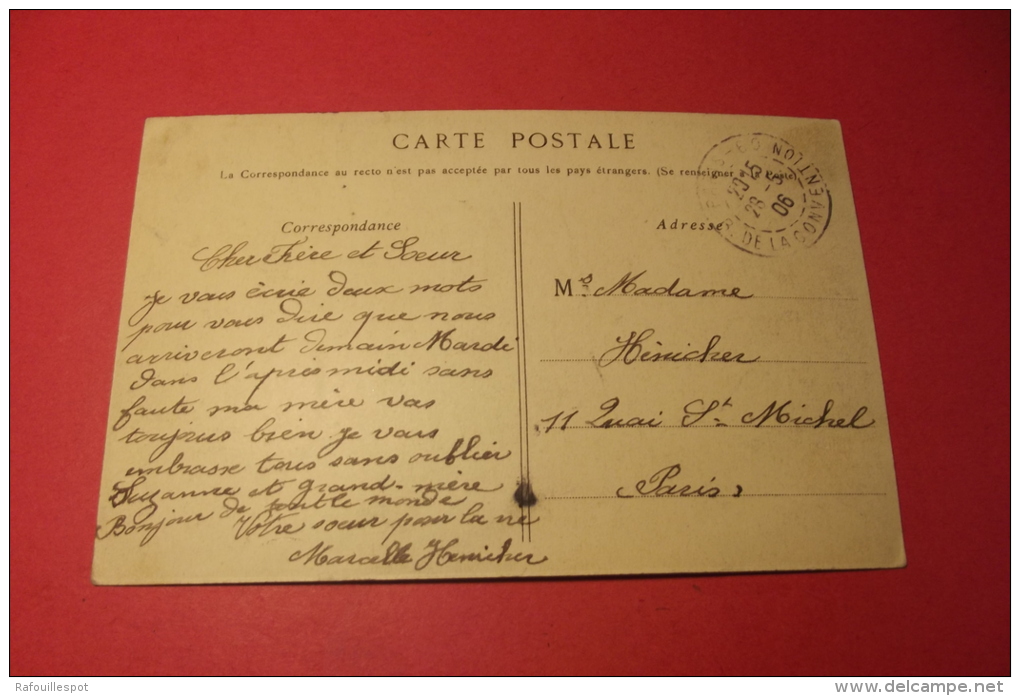 CARTE POSTALE
La Correspondance au recto n'est pas acceptée par tous les pays étrangers. (Se renseigner à la Poste)
Correspondance
Cher Frère et Soeur
Je vous écrie deux mots
pour vous dire que nous
arriveront demain Mardi
dans l'après midi sans
faute ma mère vas
toujours bien je vous
embrasse tous sans oublier
Suzanne et grand-mère
Bonjour de tout le monde
Votre soeur pour la vie
Marcelle Hénicher
Adresse
Ms Madame
Hénicher
11 Quai St Michel
Paris
R. DE LA CONVENTION
28 -5
06
Rafouillespot
www.delcampe.net